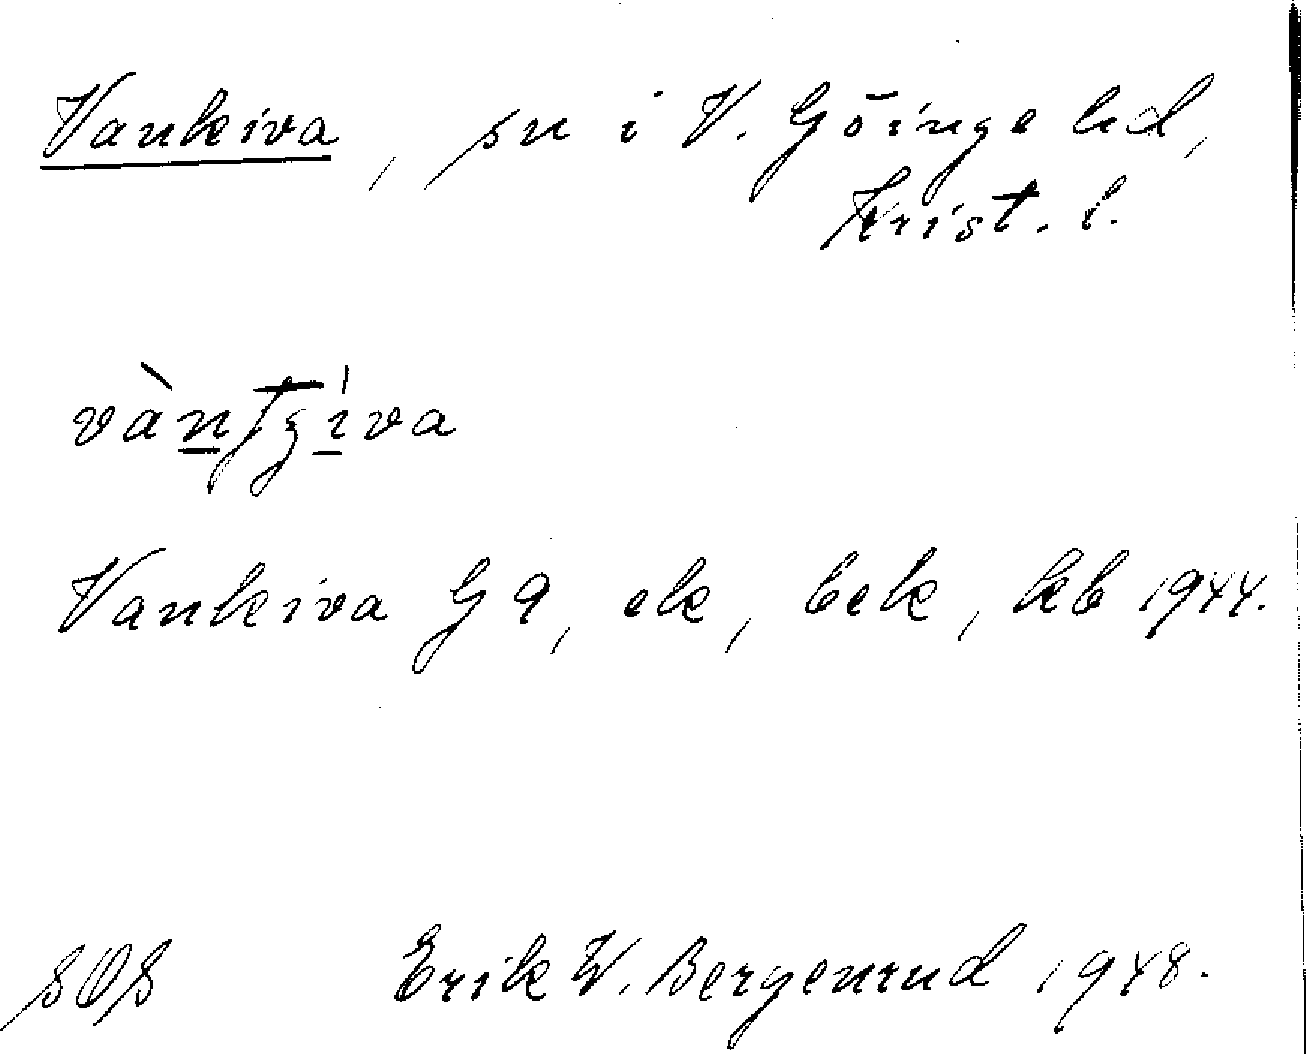 Vankiva, sn i V. Göinge hd,
Krist. l.
Vankiva G 9, ek, bek, kb 1944.
SOS Erik W. Bergenrud 1948.